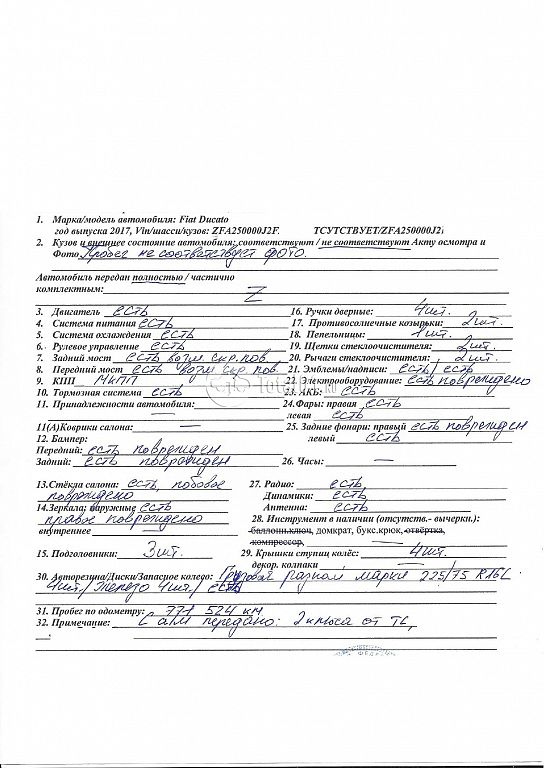 1. Марка/модель автомобиля: Fiat Ducato
год выпуска 2017, Vin/шасси/кузов: ZFA250000J2F. ТСУТСТВУЕТ/ZFA250000J2
2. Кузов и внешнее состояние автомобиля: соответствуют / не соответствуют Акту осмотра и
Фото Пробег не соответствует фото.
Автомобиль передан полностью / частично
комплектным: Z
3. Двигатель есть 16. Ручки дверные: 4шт.
4. Система питания есть 17. Противосолнечные козырьки: 2шт.
5. Система охлаждения есть 18. Пепельницы: 1шт.
6. Рулевое управление есть 19. Щетки стеклоочистителя: 2шт.
7. Задний мост есть возм. скр. пов. 20. Рычаги стеклоочистителя: 2шт.
8. Передний мост есть возм. скр. пов. 21. Эмблемы/надписи: есть/ есть
9. КПП МКПП 22. Электрооборудование: есть повреждено
10. Тормозная система есть 23. АКБ: есть
11. Принадлежности автомобиля: 24. Фары: правая есть
левая есть
11(А)Коврики салона: — 25. Задние фонари: правый есть поврежден
12. Бампер: левый есть
Передний: есть поврежден
Задний: есть поврежден 26. Часы: —
13.Стёкла салона: есть, лобовое 27. Радио: есть
повреждено Динамики: есть
14.Зеркала: наружные есть Антенна: есть
правое повреждено 28. Инструмент в наличии (отсутств.- вычеркн.):
внутреннее — баллонн.ключ, домкрат, букс.крюк, отвёртка,
компрессор,
15. Подголовники: 3шт. 29. Крышки ступиц колёс: 4шт.
декор. колпаки —
30. Авторезина/Диски/Запасное колесо: Грузовая разной марки 225/75 R16C
4шт./ Железо 4шт./ есть
31. Пробег по одометру: 771 524 км
32. Примечание: С а/м передано: 2 ключа от ТС,